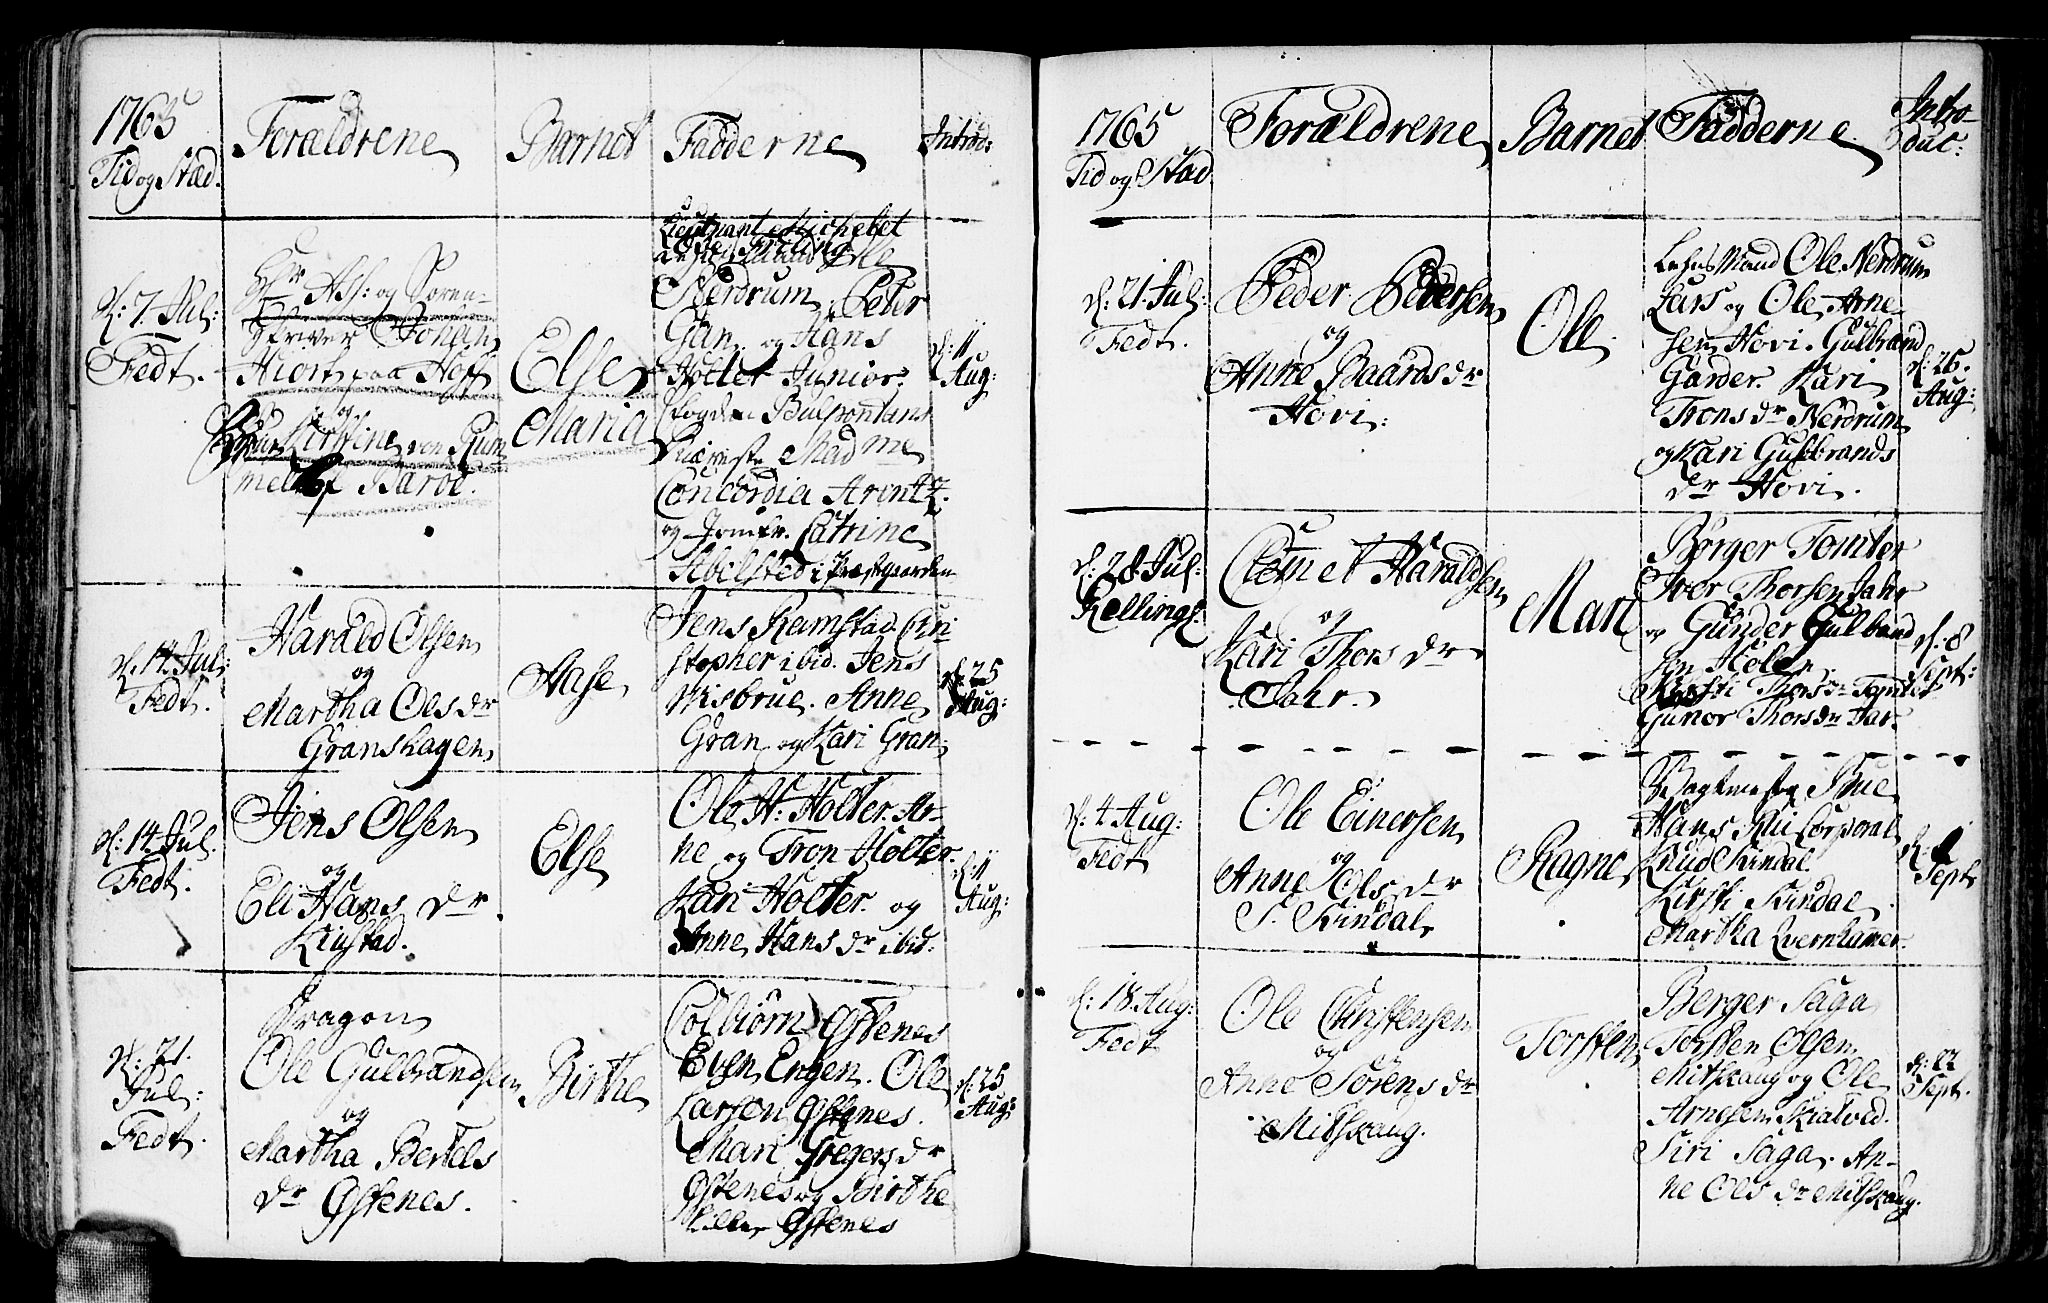 1765
Tid og Stæd.
Forældrene
Barnet
Fadderne
Introd:
d: 7. Jul:
Fedt.
Hr. Ass: og Soren-
skriver Johan
Hiort paa Hoff
og
Frue Kirstine von Rum
melhof Baroe.
Else
Maria
Lieutnant Michelet
Ole
Nerdrum. Peter
Gan og Hans
Holter Junior.
Fogden
Madme
Concordia Arintz.
og Jomfr. Catrine
Sibilsted i Præstgaarden
d: 11
Aug:
d: 14. Jul:
Fedt.
Harald Olsen
og
Martha Ols dr
Granshagen
Aase
Jens Ramstad. Chri
stopher ibid. Jens
Wisbrue. Anne
Gran og Kari Gran.
d: 25
Aug:
d: 14. Jul.
Fedt.
Jens Olsen
og
Eli Hans dr
Kiustad.
Else
Ole H: Holter. Ar-
ne og Tron Holter.
Kari Holter. og
Anne Hans dr ibid.
d: 11
Aug:
d: 21.
Jul:
Fedt.
Dragon
Ole Gulbrandsen
og
Martha Bertels
dr Østenes.
Birthe
Colbiørn Østenes
Even Engen. Ole
Larsen Østenes.
Mari Gregers dr
Østenes og Birthe
Østenes
d: 25
Aug:
1765
Tid og Stad.
Forældrene
Barnet
Fadderne
Intro-
duc:
d: 21. Jul:
Fedt.
Peder Pedersen
og
Anne Baards dr
Hovi:
Ole
Lehnsmand Ole Nerdrum
Lars og Ole Arne-
sen Hovi. Gulbrand
Garder. Kari
Trons dr Nerdrum
og Kari Gulbrands
dr Hovi.
d: 25.
Aug:
d: 28. Jul:
Kellingh.
Clemet Haraldsen
og
Kari Thors dr
Jahr.
Mari
Børger Tomter
Iver Thorsen Jahr
og Gunder Gulband
sen Holen
Kirsti Thors dr Tomter
Gunor Thorsdr Jar.
d: 8
Sept:
d: 4 Aug:
Fedt
Ole Einersen
og
Anne Ols dr
S. Kindal
Ragne
Vagtmester Bue
Hans Mii Corporal
Knud Kindal.
Kirsti Kindal.
Martha Qvernhamer.
d: 1
Sept
d: 18. Aug:
Fedt
Ole Christensen
og
Anne Sørens dr
Mitskaug.
Torsten
Berger Saga
Torsten Olsen
Mitskaug og Ole
Arnesen Kiatvid.
Siri Saga. An-
ne Ols dr Mitskaug.
d: 22
Sept.